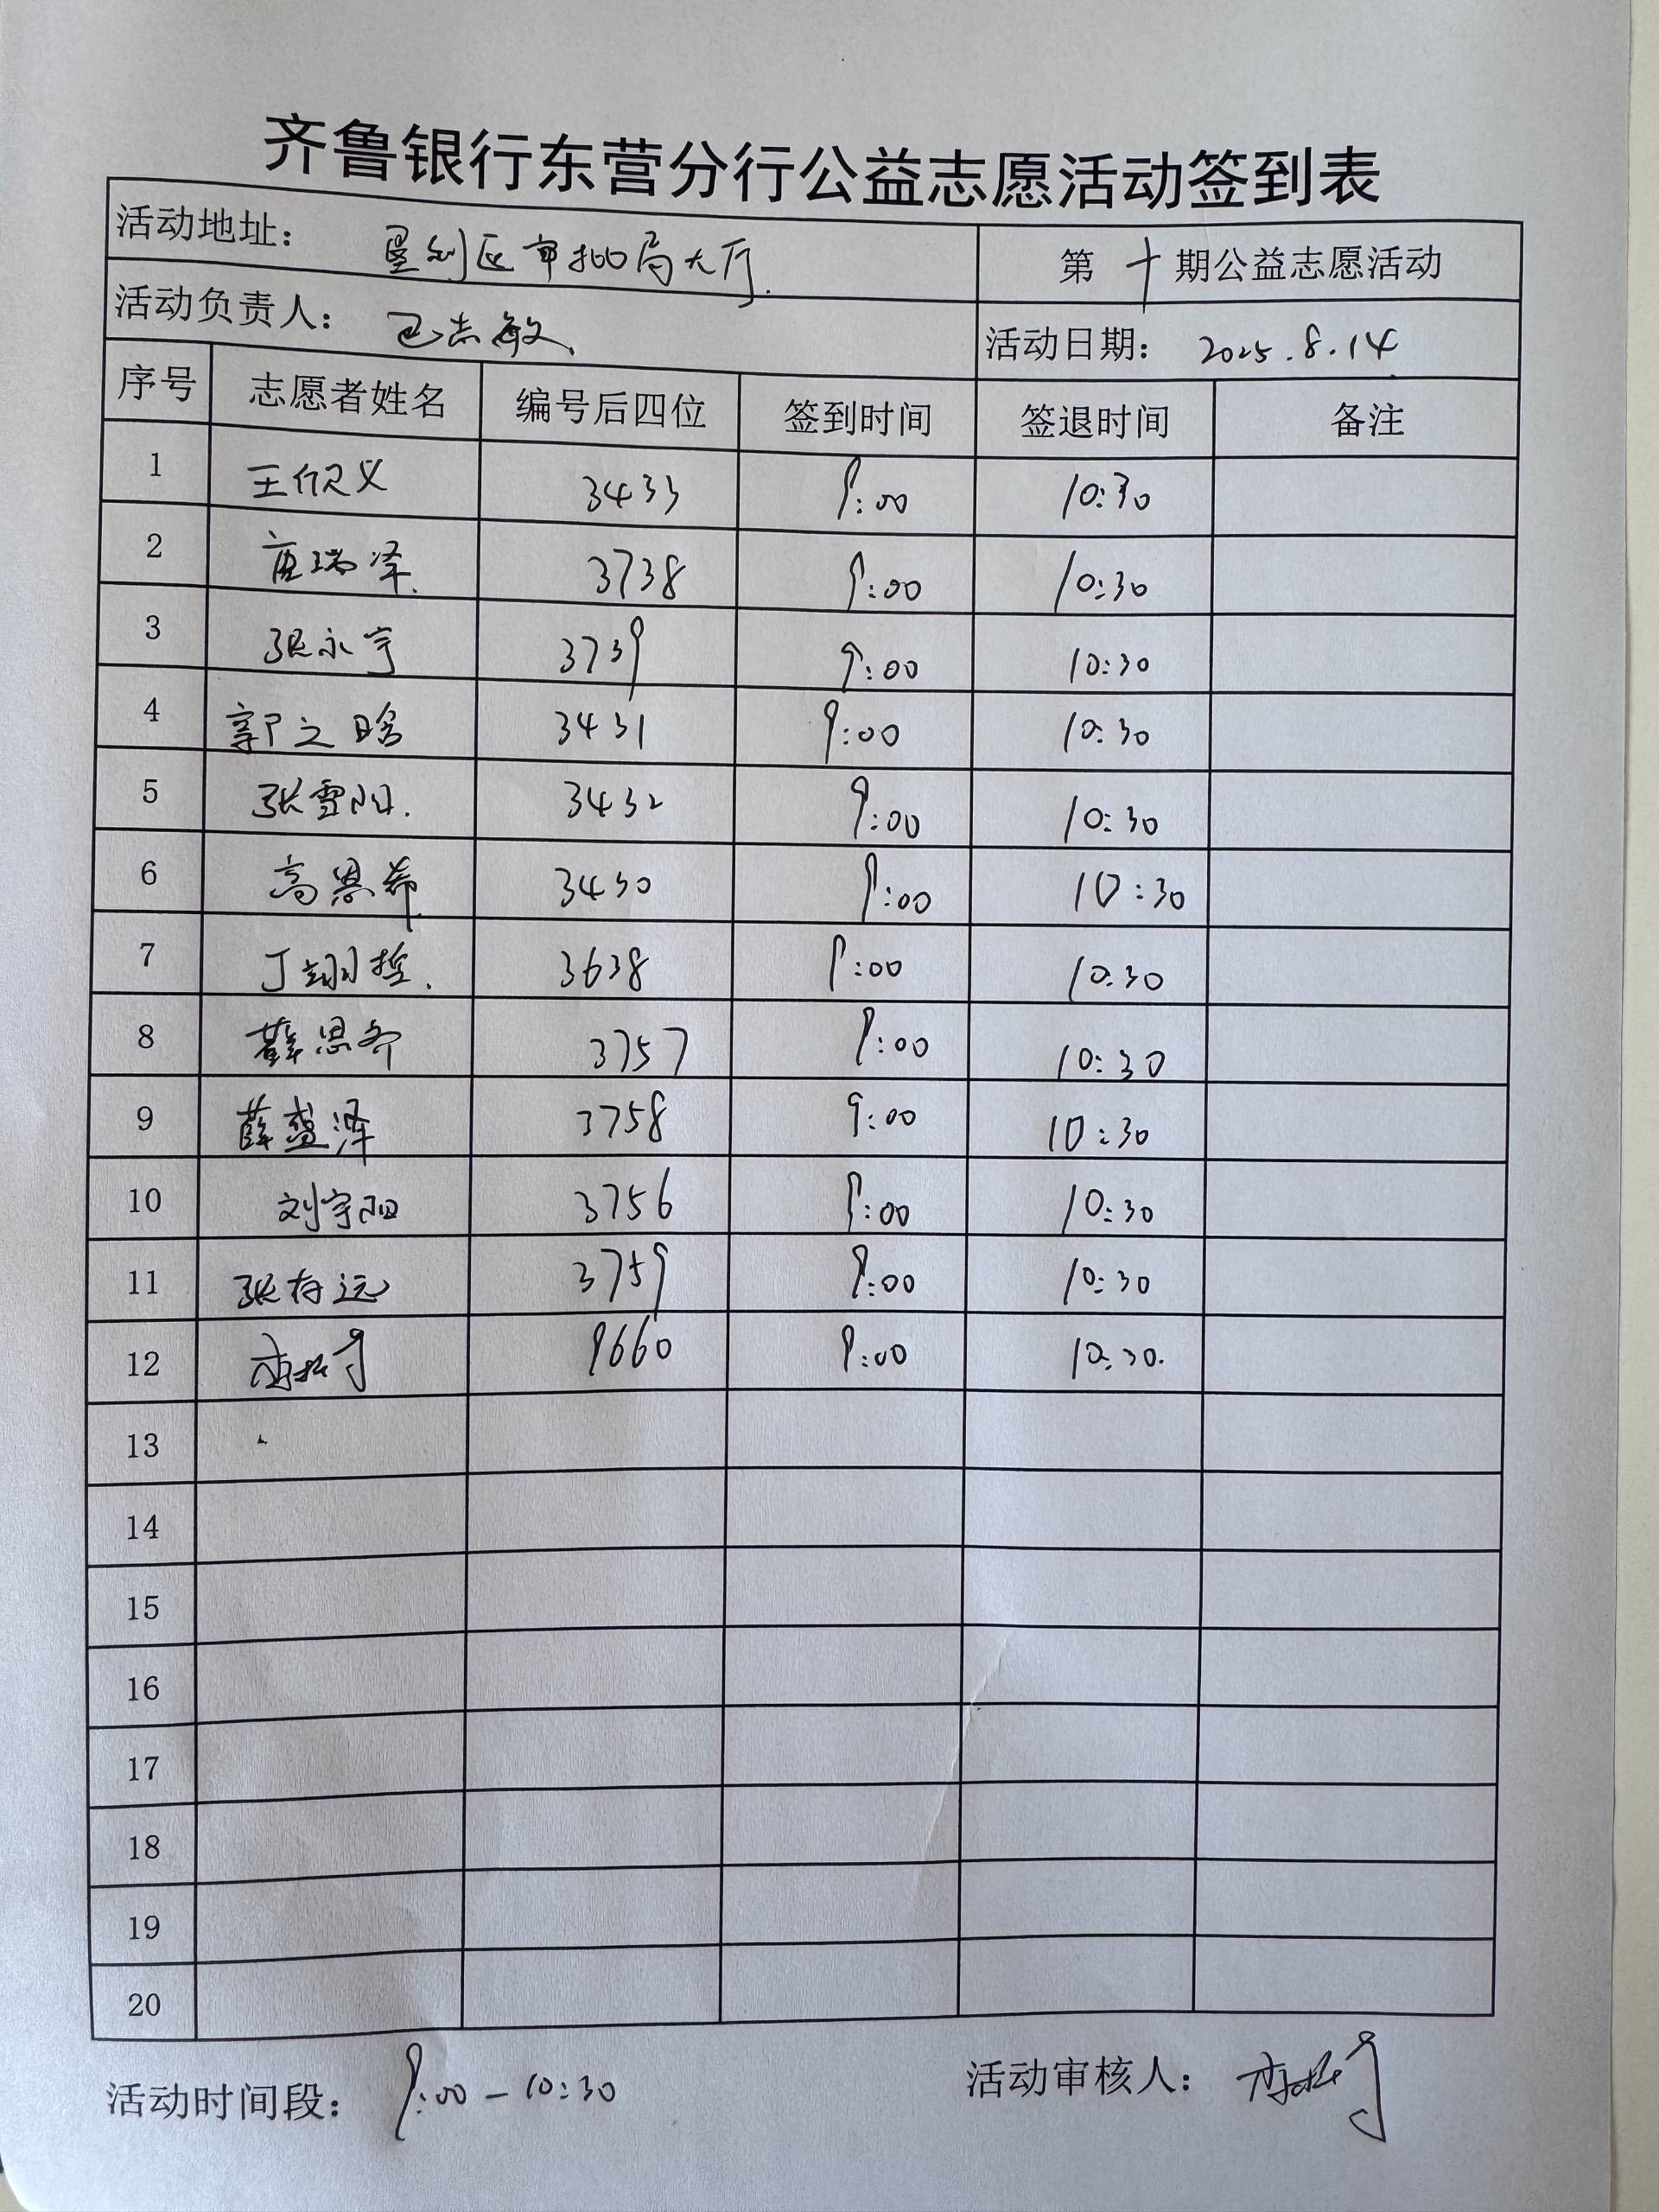 齐鲁银行东营分行公益志愿活动签到表
活动地址： 垦利区审批局大厅 第十期公益志愿活动
活动负责人： 志敏 活动日期： 2025.8.14
序号 志愿者姓名 编号后四位 签到时间 签退时间 备注
1 王义 3433 9:00 10:30
2 瑞泽. 3738 9:00 10:30
3 张永宁 3739 9:00 10:30
4 郭之晗 3431 9:00 10:30
5 张雪阳. 3432 9:00 10:30
6 高恩希 3430 9:00 10:30
7 丁翊哲. 3638 9:00 10:30
8 薛思齐 3757 9:00 10:30
9 薛盛泽 3758 9:00 10:30
10 刘宇阳 3756 9:00 10:30
11 张存远 3759 9:00 10:30
12 9660 9:00 10:30.
13
14
15
16
17
18
19
20
活动时间段： 9:00-10:30 活动审核人：